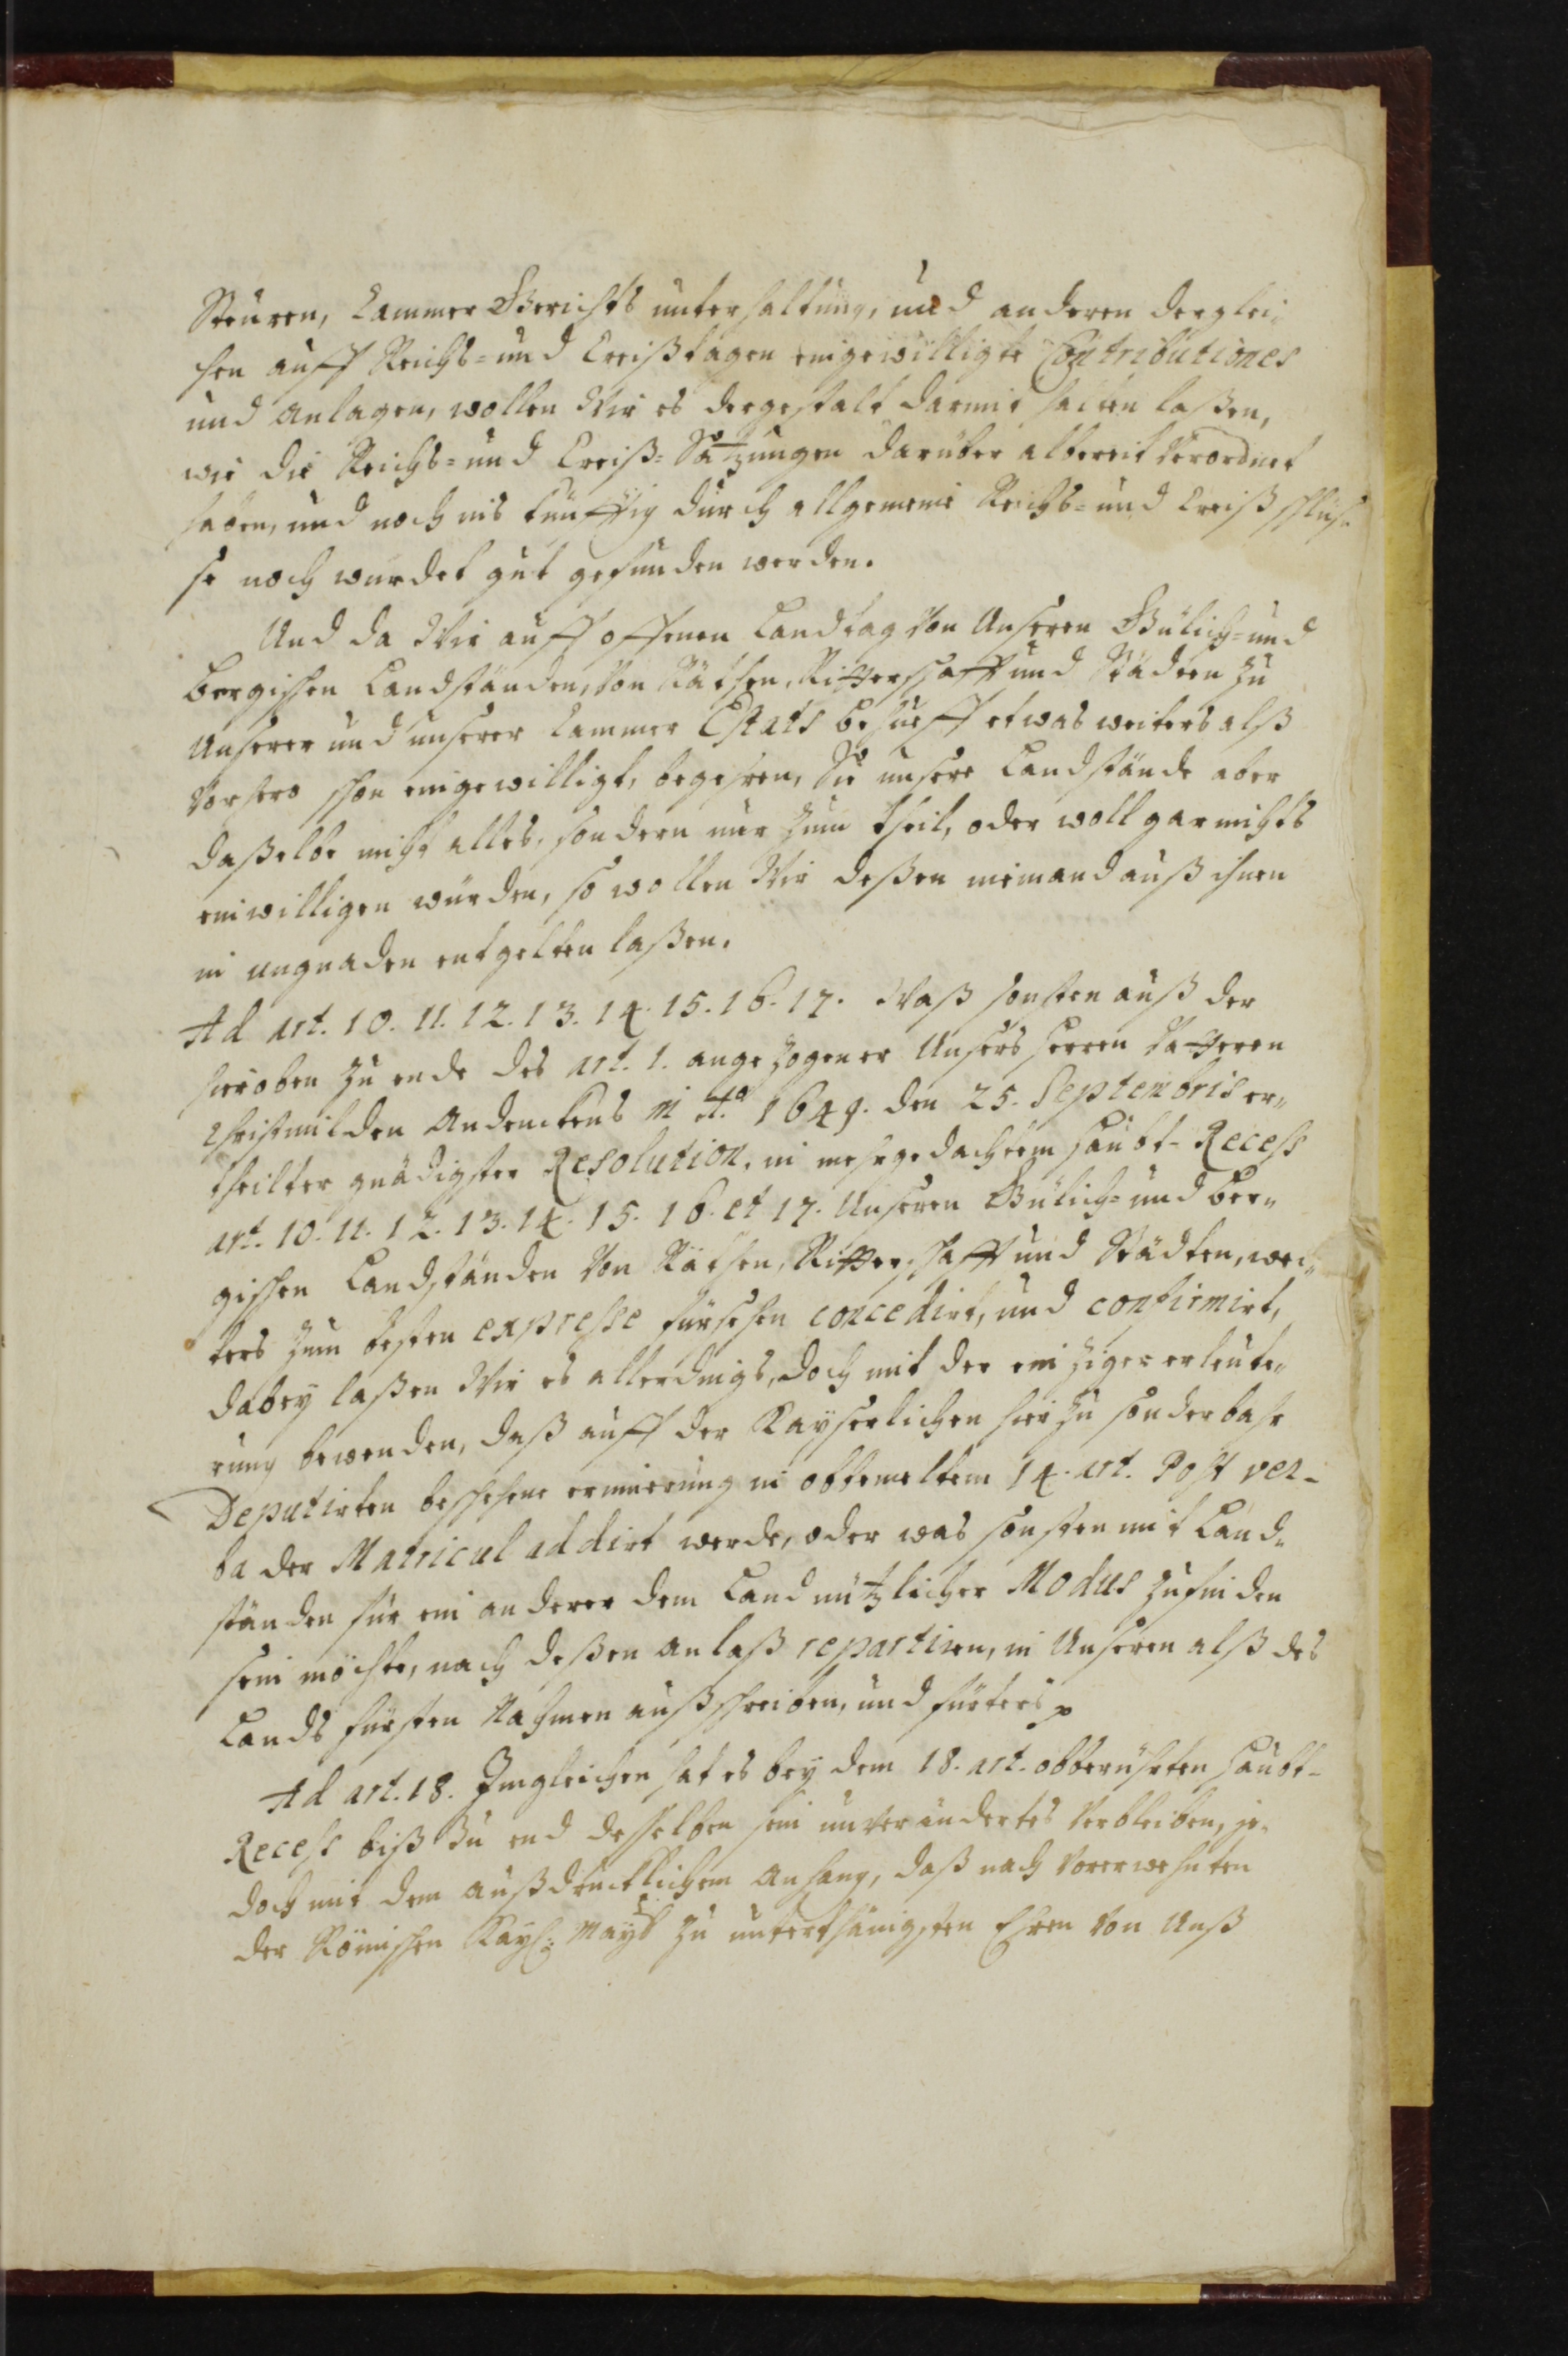 Steuren, Cammer Gerichts unterhaltung, und anderen derglei-
chen auff Reichs= und Creißtagen eingewilligte Contributiones
und anlagen, wollen Wir es dergestalt darmit halten laßen,
wie die Reichs= und Creiß= Satzungen darüber albereit verordnet
haben, und noch ins künfftig durch allgemeine Reichs= und Creiß schlüs-
se noch wurdet gut gefunden werden.
Und da Wir auff offenen Landtag von Unseren Gülich= und
Bergischen Landständen, von Räthen, Ritterschafft und Städten zu
Unserer und unserer Cammer Estats behueff etwas weiters alß
vorhero schon eingewilligt, begehren, Sie unsere Landstände aber
daßelbe nicht alles, sondern nur zum theil, oder woll gar nichts
einwilligen würden, so wollen Wir deßen niemand auß ihnen
in ungnaden entgelten laßen.
Ad art. 10. 11. 12. 13. 14. 15. 16. 17. Waß sonsten auß der
hieroben zu ende des art. 1. angezogener Unsers herren Vatteren
Christmilden Andenckens in Ao. 1649. den 25. Septembris er-
theilter gnädigster Resolution, in mehrgedachtem haubt-Recess
art. 10. 11. 12. 13. 14. 15. 16. et 17. Unseren Gülich= und Ber-
gischen Landständen von Räthen, Ritterschafft und Städten, wei-
ters zum besten expresse fürsehen concedirt, und confirmirt,
dabey laßen Wir es allerdings, doch mit der einziger erleute-
rung bewenden, daß auff der Kayserlichen hierzu sonderbahr
Deputirten beschehene erinnerung in obbemeltem 14. art. Post ver-
ba der Matricul addirt werde, oder was sonsten mit Land-
ständen für ein anderer dem Land nützlicher Modus zufinden
sein möchte, nach deßen anlaß repartiren, in Unseren alß des
Lands fürsten Nahmen außschreiben, und fürters p
Ad art. 18. Ingleichen hat es bey dem 18. art. obberührten haubt-
Recess biß zu end desselben sein unverändertes verbleiben, je-
doch mit dem außdrucklichem anhang, daß nach vorerwehnten
der Römischen Kayß: Mayt zu unterthänigsten Ehren von Unß